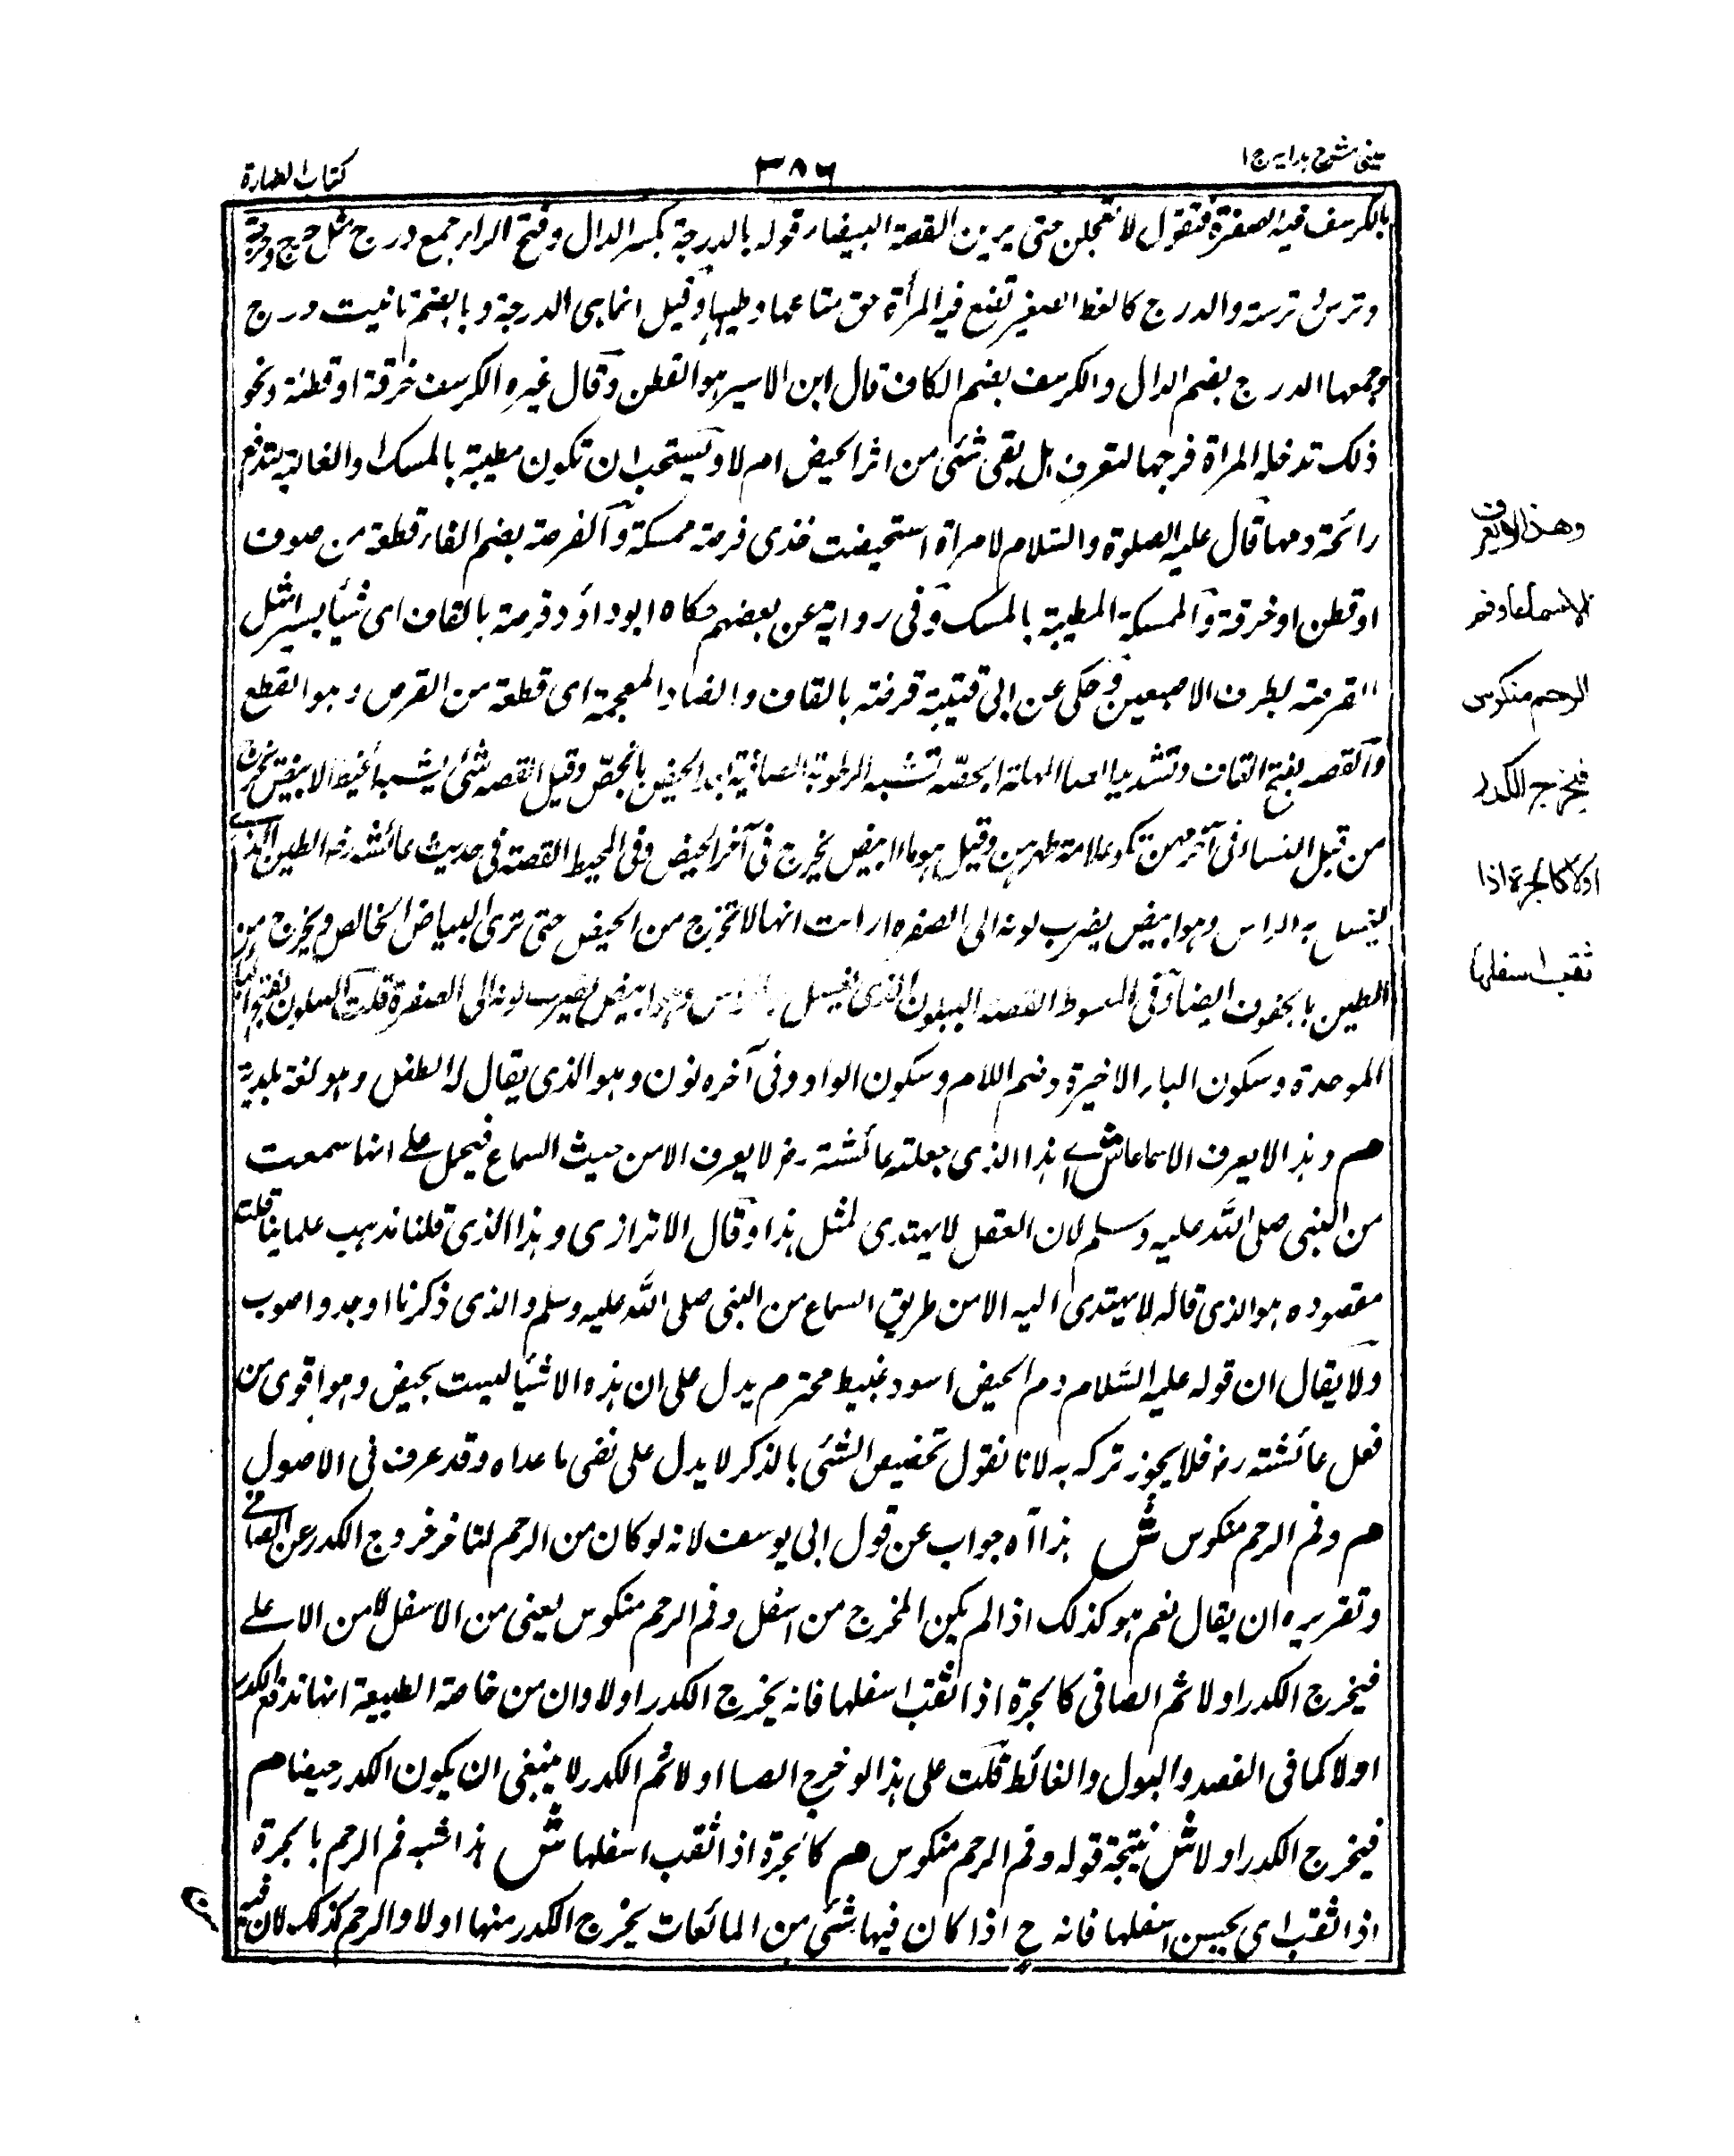 عینی شرح ہدایہ ج ۱
۳۸۶
کتاب الطهارة
بالکرسف فیه الصفرة فتقول لا تعجلن حتی یرین القصة البیضاء قوله بالدرجة بکسر الدال وفتح الراء جمع درج مثل خرج وخرجة
وترس وترسة والدرج کالسفط الصغیر تضع فیه المرأة حق متاعها وطیبها وقیل انما هی الدرجة وبالضم تانیث درج
وجمعها الدرج بضم الدال والکرسف بضم الکاف قال ابن الاسیر هو القطن وقال غیره الکرسف خرقة او قطنة ونحو
ذلک تدخله المراة فرجها لتعرف هل بقی شئی من اثر الحیض ام لا ویستحب ان تکون مطیبة بالمسک او الغالیة لتدفع
رائحة دمها قال علیه الصلوة والسلام لامراة استحیضت خذی فرصة ممسکة والفرصة بضم الفاء قطعة من صوف
او قطن او خرقة والممسکة المطیبة بالمسک وفی روایة عن بعضهم حکاه ابو داؤد وقرصة بالقاف ای شیأ یسیرا مثل
القرصة بطرف الاصبعین وحکی عن ابی قتیبة قرضة بالقاف والضاد المعجمة ای قطعة من القرض وهو القطع
والقصه بفتح القاف وتشدید الصاد المهملة الجصة تشبه الرطوبة الصافیة بعد الحیض بالجص وقیل القصه شئی یشبه الخیط الابیض یخرج
من قبل النساء فی آخر حیضهن تکون علامة طهرهن وقیل هو ماء ابیض یخرج فی آخر الحیض وفی المحیط القصة فی حدیث عائشه رضـ الطین الذی
یغسل به الراس وهو ابیض یضرب لونه الی الصفره ارادت انها لا تخرج من الحیض حتی تری البیاض الخالص ویخرج من
الطین بالجفوف ایضا وفی المبسوط القصه البیلون الذی یغسل به الراس وهو ابیض یضرب لونه الی الصفرة قلت البیلون بفتح الباء
الموحدة وسکون الیاء الاخیرة وضم اللام وسکون الواو وفی آخره نون وهو الذی یقال له الطفل وهو لغة بلدیة
هـم وهذا لا یعرف الا سماعا ش ای هذا الذی جعلته عائشة رضـ لا یعرف الا من حیث السماع فیحمل علی انها سمعت
من النبی صلی الله علیه وسلم لان العقل لا یهتدی لمثل هذا وقال الاترازی وهذا الذی قلنا مذهب علماینا قلت
مقصوده هو الذی قاله لا یهتدی الیه الا من طریق السماع من النبی صلی الله علیه وسلم والذی ذکرنا اوجه واصوب
ولا یقال ان قوله علیه السلام دم الحیض اسود عبیط محترم یدل علی ان هذه الاشیا لیست بحیض وهو اقوی من
فعل عائشة رضـ فلا یجوز ترکه به لانا نقول تخصیص الشئی بالذکر لا یدل علی نفی ما عداه وقد عرف فی الاصول
هـم وفم الرحم منکوس ش هذا آه جواب عن قول ابی یوسف لانه لو کان من الرحم لتاخر خروج الکدر عن الصافی
وتقریره ان یقال نعم هو کذلک اذا لم یکن المخرج من اسفل وفم الرحم منکوس یعنی من الاسفل لا من الاعلے
فیخرج الکدر اولا ثم الصافی کالجرة اذا ثقب اسفلها فانه یخرج الکدر اولا وان من خاصة الطبیعة انها تدفع الکدر
اولا کما فی الفصد والبول والغائط قلت علی هذا لو خرج الصا اولا ثم الکدر لا ینبغی ان یکون الکدر حیضا هـم
فیخرج الکدر اولا ش نتیجة قوله وفم الرحم منکوس هـم کالجرة اذا ثقب اسفلها ش هذا شبه فم الرحم بالجرة
اذا ثقب ای یحیسن اسفلها فانه ح اذا کان فیها شئی من المائعات یخرج الکدر منها اولا والرحم کذلک لان فیه
وهذا لا یعرف
الا سماعا وفم
الرحم منکوس
فیخرج الکدر
اولا کالجرة اذا
ثقب اسفلها